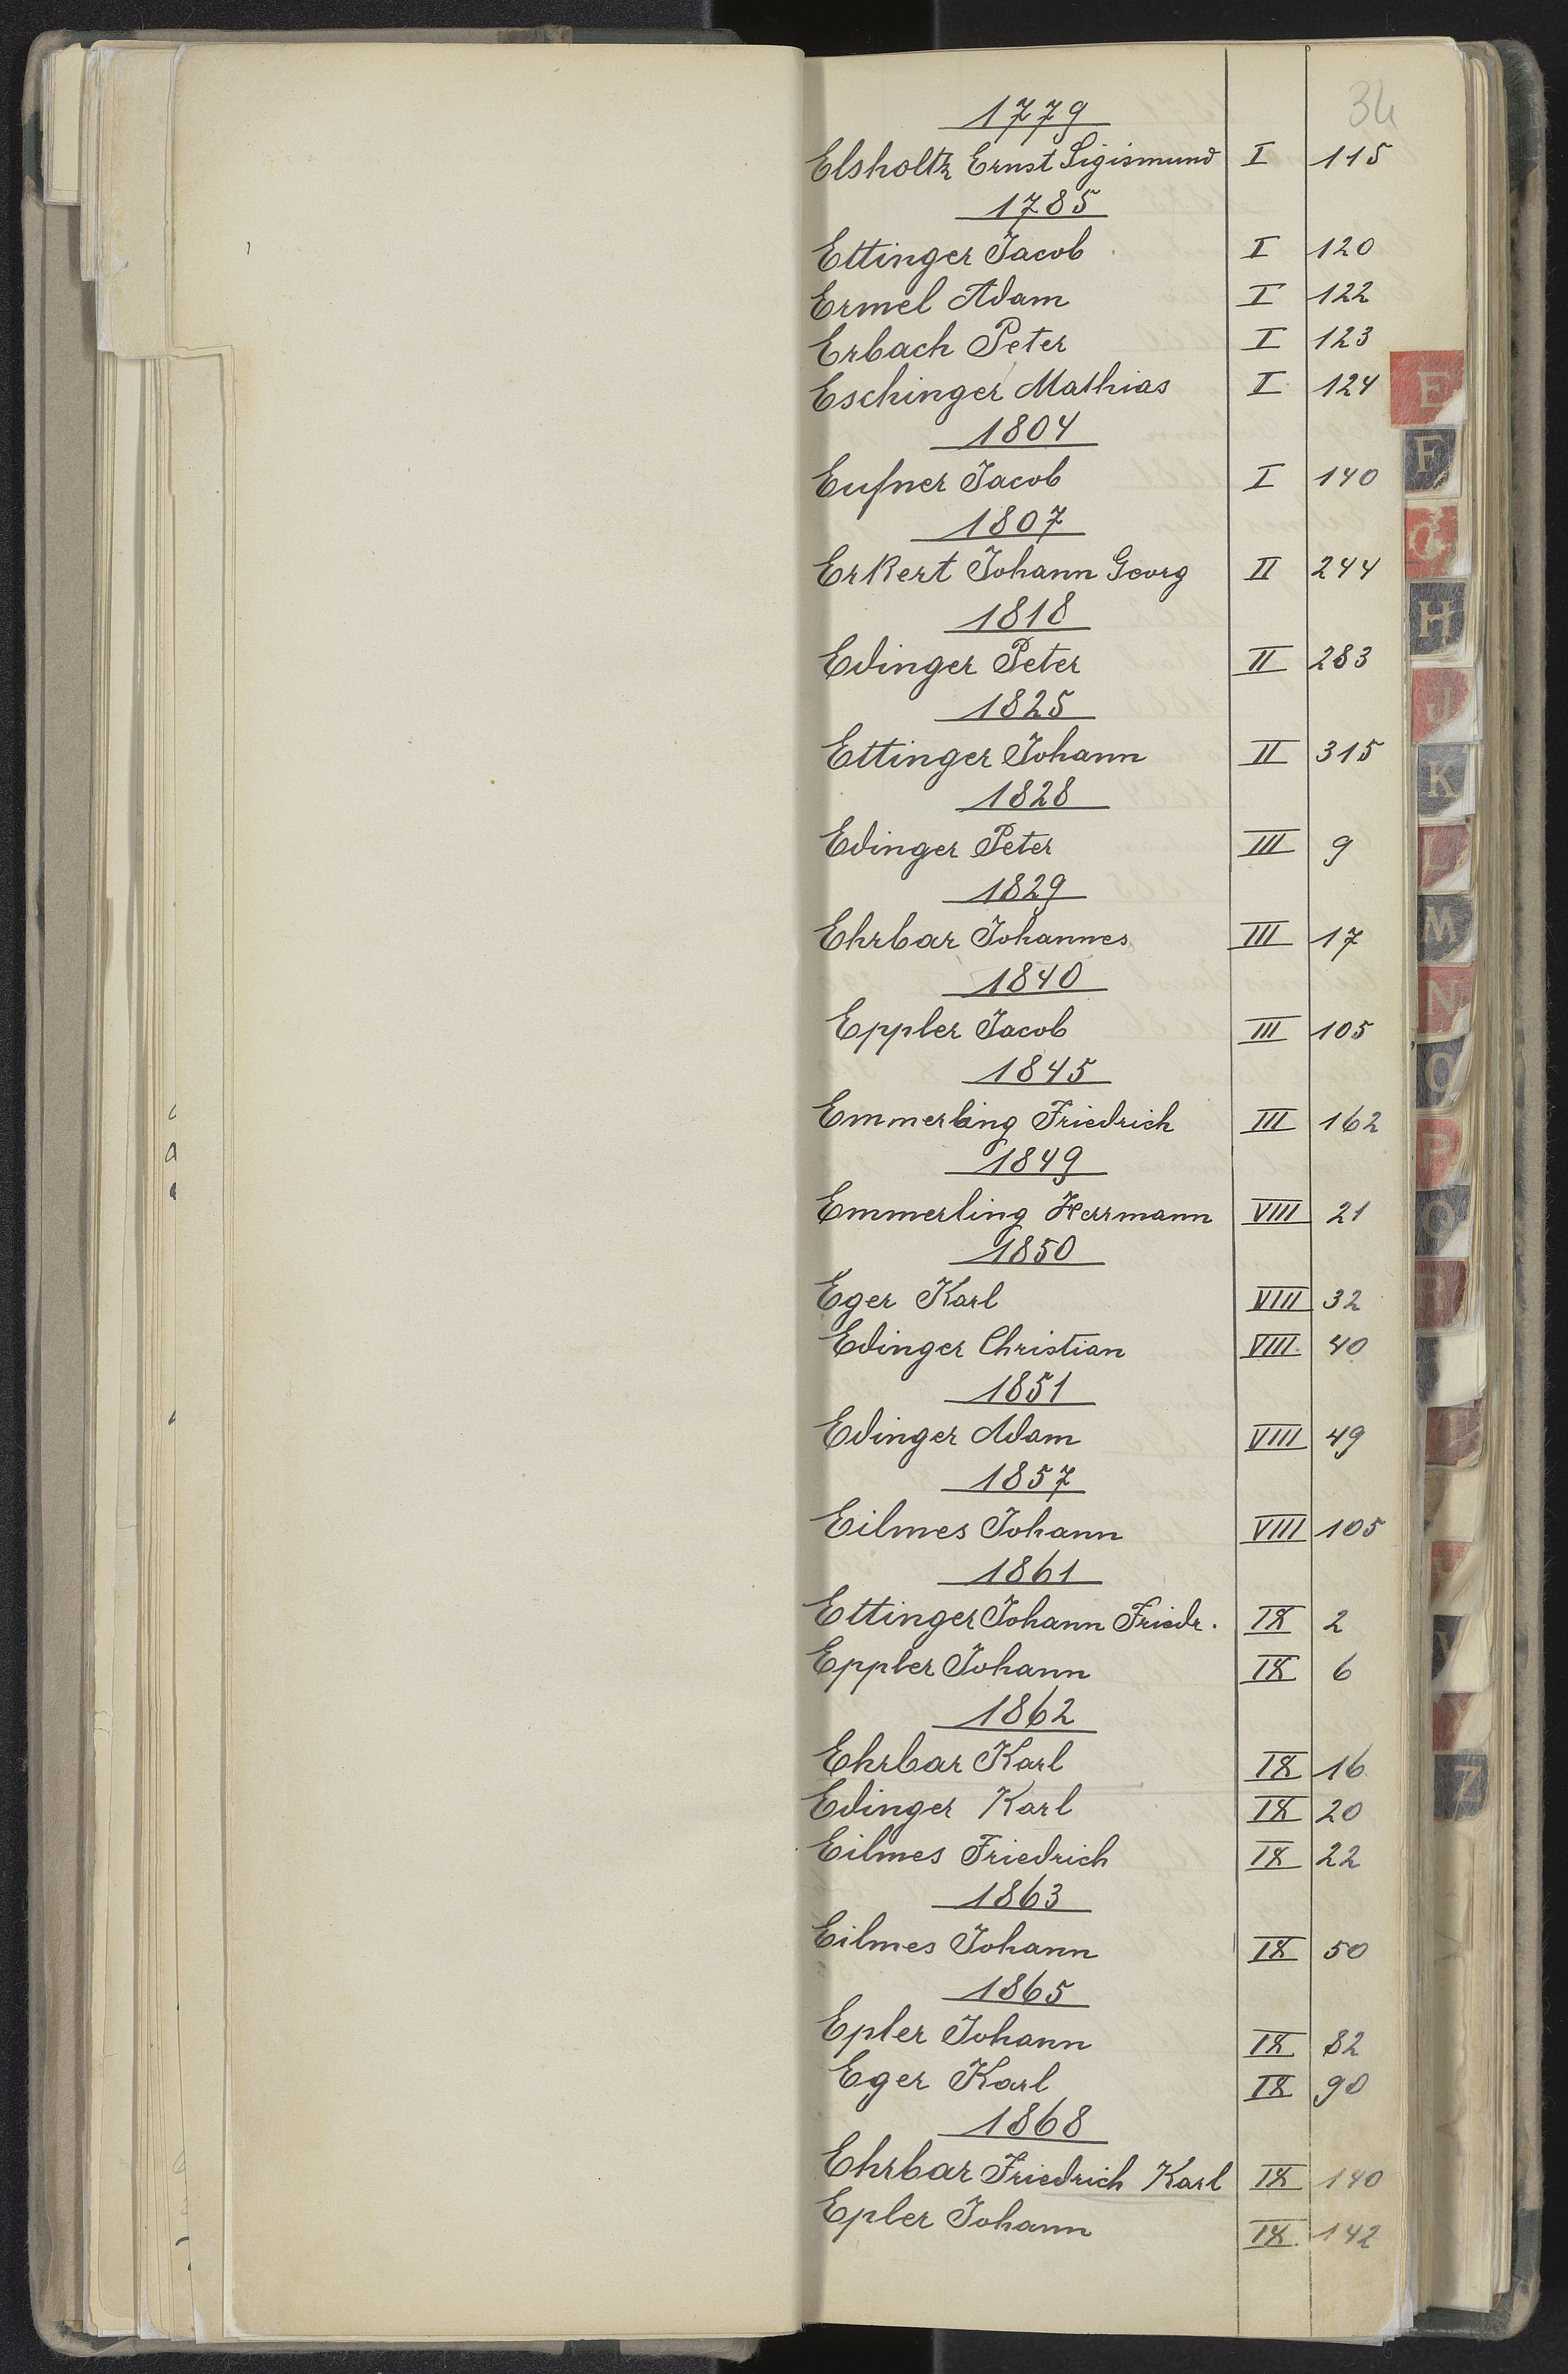 34
1779
Elsholtz Ernst Sigismund I 115
1785
Ettinger Jacob I 120
Ermel Adam I 122
Erbach Peter I 123
Eschinger Mathias I 124
1804
Eufner Jacob I 140
1807
Erkert Johann Georg II 244
1818
Edinger Peter II 283
1825
Ettinger Johann II 315
1828
Edinger Peter III 9
1829
Ehrbar Johannes III 17
1840
Eppler Jacob III 105
1845
Emmerling Friedrich III 162
1849
Emmerling Herrmann VIII 21
1850
Eger Karl VIII 32
Edinger Christian VIII 40
1851
Edinger Adam VIII 49
1857
Eilmes Johann VIII 105
1861
Ettinger Johann Friedr. IX 2
Eppler Johann IX 6
1862
Ehrbar Karl IX 16
Edinger Karl IX 20
Eilmes Friedrich IX 22
1863
Eilmes Johann IX 50
1865
Epler Johann IX 82
Eger Karl IX 90
1868
Ehrbar Friedrich Karl IX 140
Epler Johann IX 142
E
F
G
H
J
K
L
M
N
O
P
Q
R
V
Z